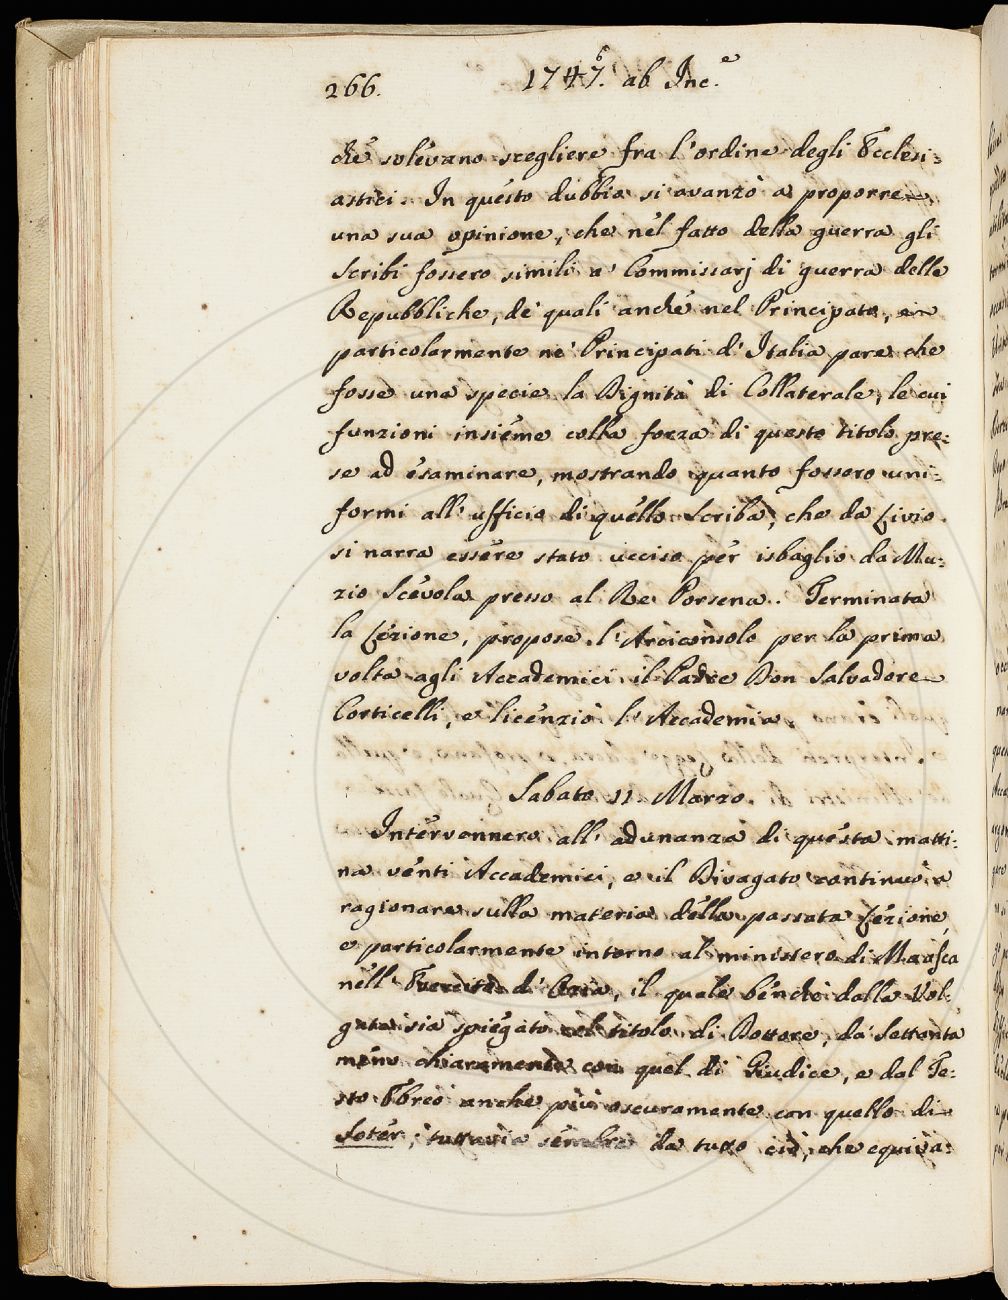 266. 1747. 6 ab Inc.e
chè solevano scegliere fra l'ordine degli Ecclesi=
astici. In questo dubbio si avanzò a proporre
una sua opinione, che nel fatto della guerra gli
Scribi fossero simili a' Commissarj di guerra delle
Repubbliche, de' quali anche nel Principato, e
particolarmente ne' Principati d'Italia pare che
fosse una specie la Dignità di Collaterale, le cui
funzioni insieme colla forza di questo titolo pre=
se ad esaminare, mostrando quanto fossero uni=
formi all'ufficio di quello Scriba, che da Livio
si narra essere stato ucciso per isbaglio da Mu=
zio Scevola presso al Re Porsena. Terminata
la Lezione, propose l'Arciconsolo per la prima
volta agli Accademici il Padre Don Salvadore
Corticelli, e licenziò l'Accademia.
Sabato 11 Marzo.
Intervennero all'adunanza di questa matti=
na venti Accademici, e il Divagato continuò a
ragionare sulla materia della passata Lezione,
e particolarmente intorno al ministero di Maasca
nell'Esercito d'Ozia, il quale benchè dalla Vol=
gata sia spiegato col titolo di Dottore, da' Settanta
meno chiaramente con quel di Giudice, e dal Te=
sto Ebreo anche più oscuramente con quello di
Soter; tuttavia sembra da tutto ciò, che equiva=